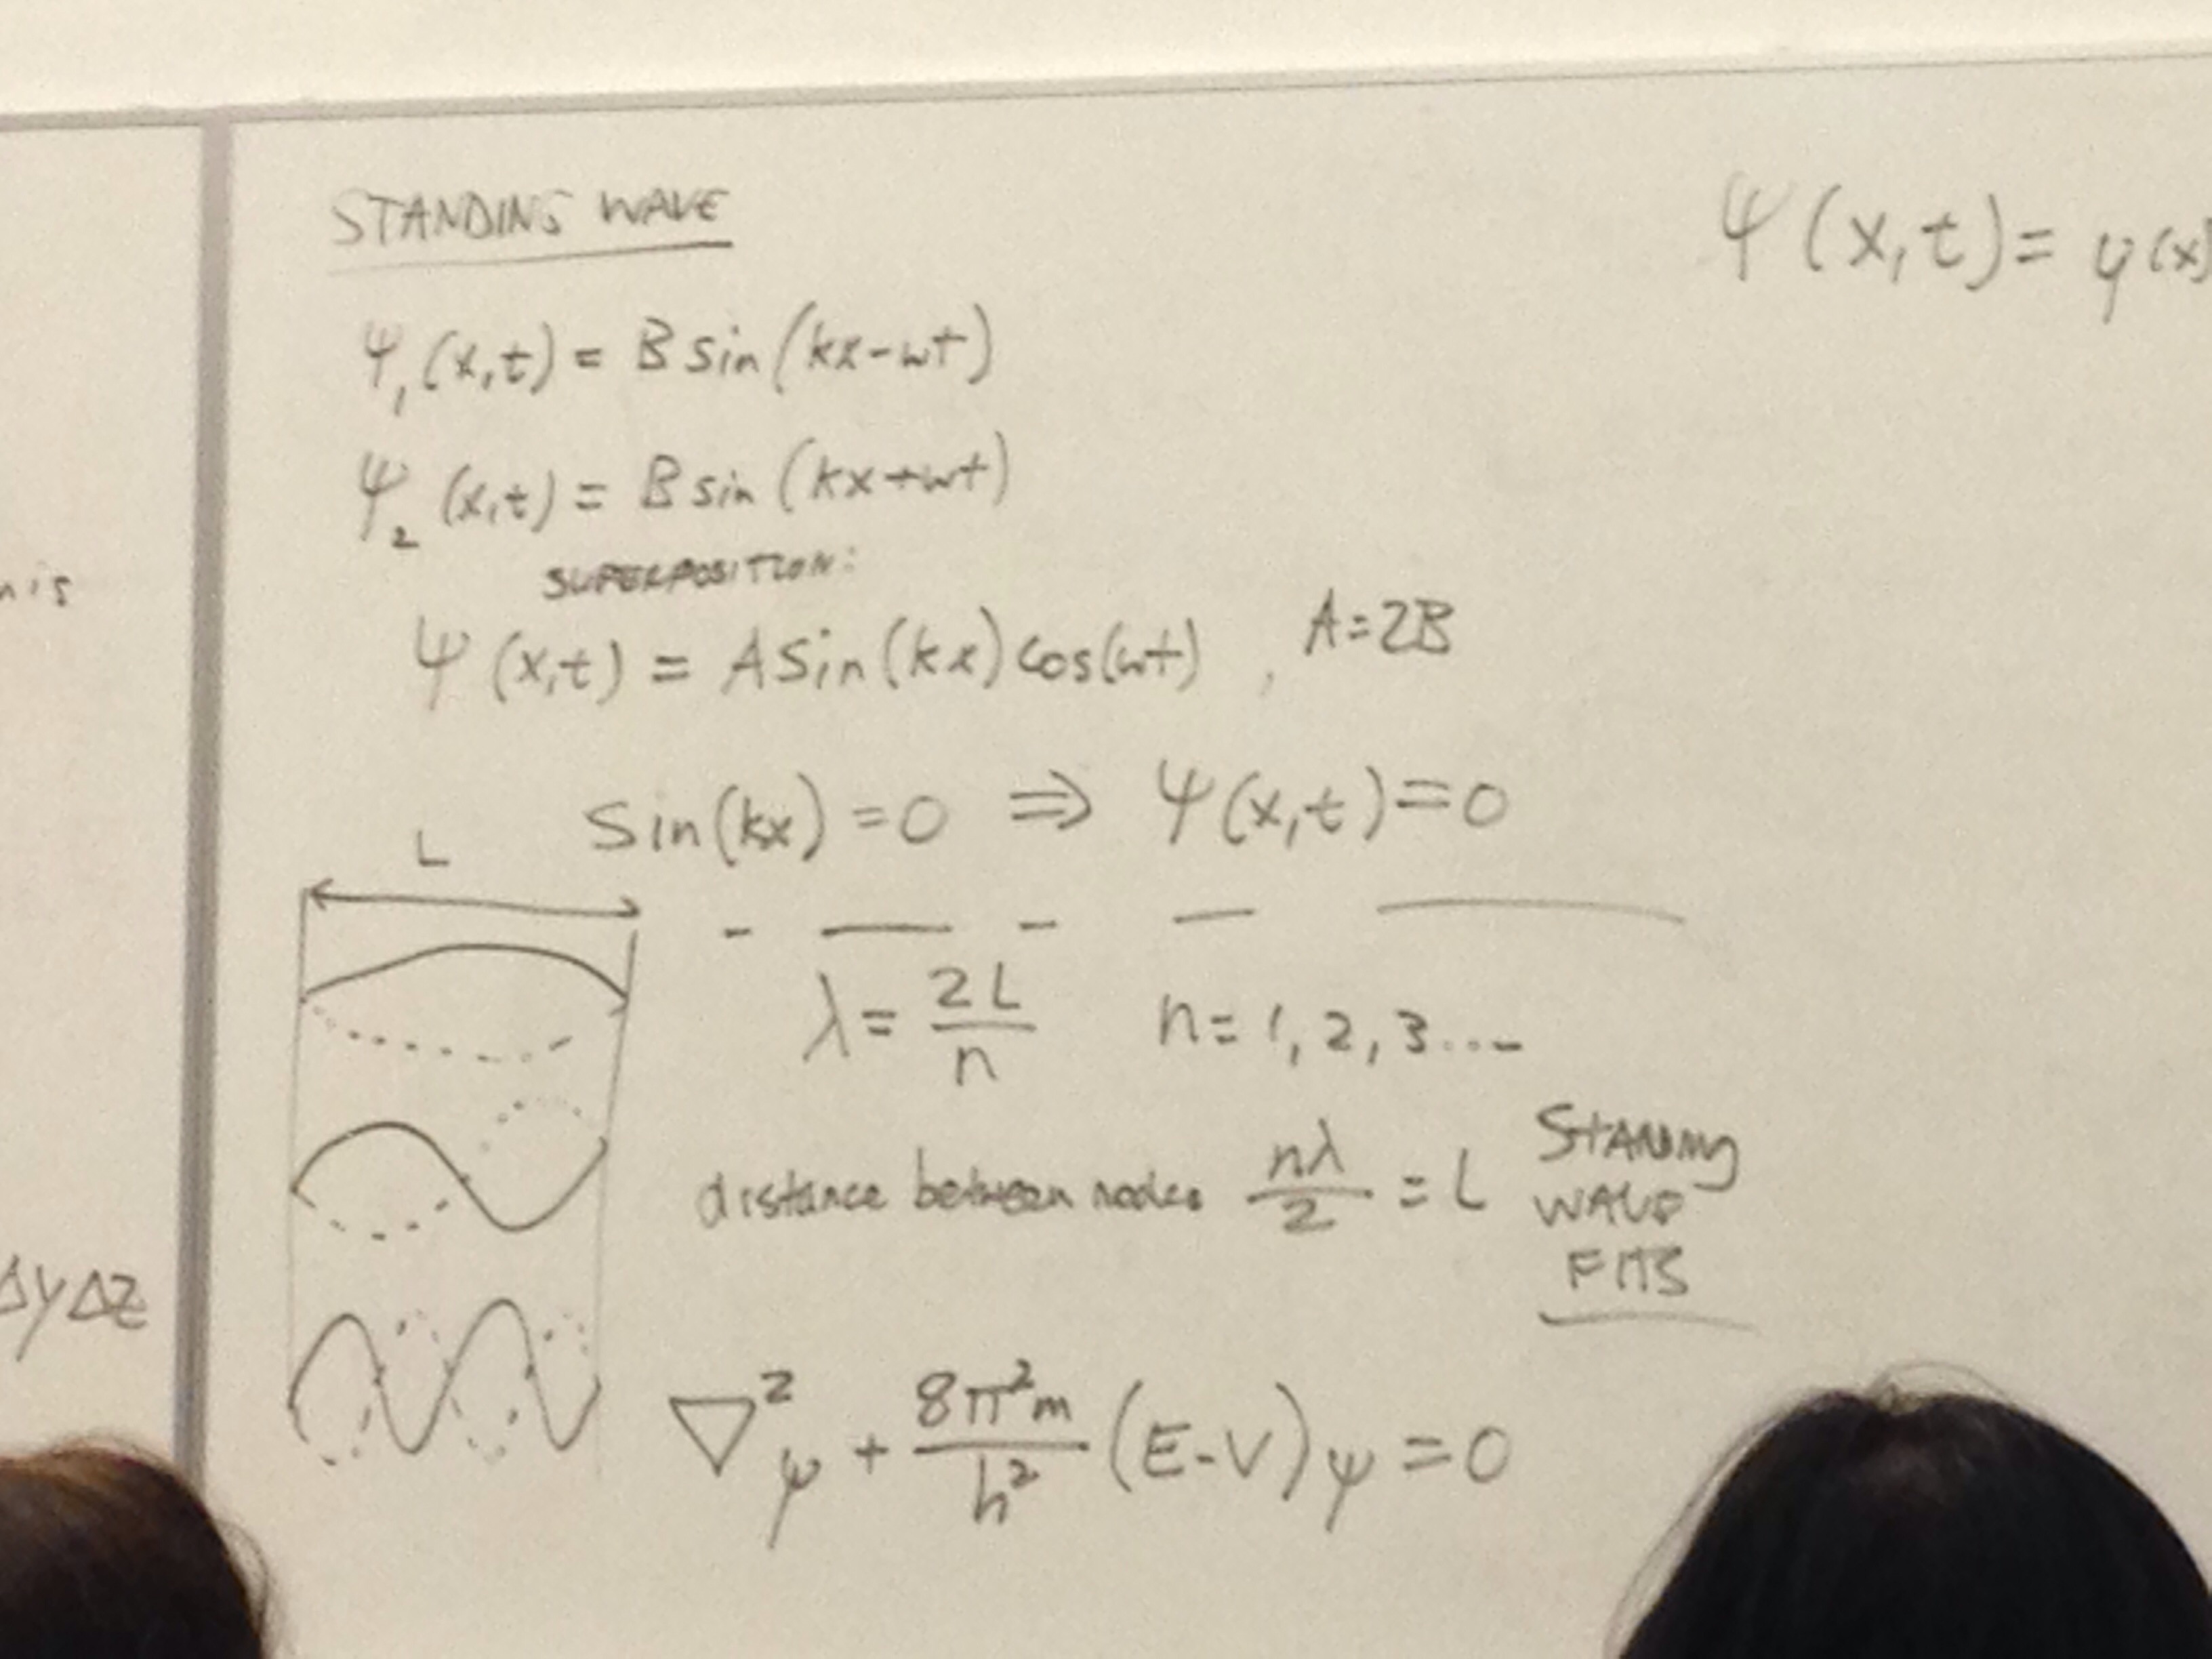 STANDING WAVE
Ψ₁(x,t) = B sin(kx-ωt)
Ψ₂(x,t) = B sin(kx+ωt)
SUPERPOSITION:
Ψ(x,t) = A sin(kx) cos(ωt) , A=2B
Sin(kx) = 0 ⇒ Ψ(x,t) = 0
L
λ = 2L/n n = 1, 2, 3....
distance between nodes nλ/2 = L STANDING
WAVE
FITS
∇²ψ + 8π²m/h² (E-V)ψ = 0
Ψ(x,t) = ψ(x)
nis
ΔyΔz